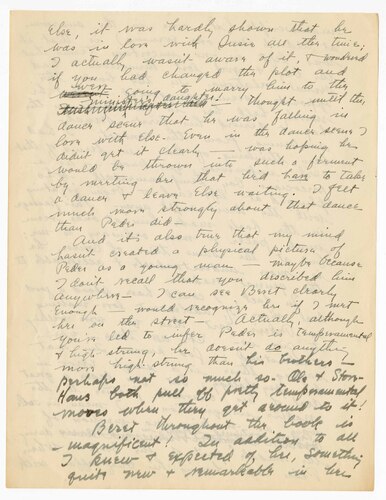 Else, it was hardly shown that he
was in love with Susie all this time;
I actually wasn't aware of it, & wondered
if you had changed the plot and
were going to marry him to the
minister's daughter! — thought until the
dance scene that he was falling in
love with Else. Even in the dance scene I
didn't get it clearly — was hoping he
would be thrown into such a ferment
by meeting her that he'd have to take
a dance & leave Else waiting. I felt
much more strongly about that dance
than Peder did —
And it's also true that my mind
hasn't created a physical picture of
Peder as a young man — maybe because
I don't recall that you described him
anywhere — I can see Beret clearly
enough — would recognize her if I met
her on the street — Actually, although
you're led to infer Peder is temperamental
& high strung, he doesn't do anything
more high-strung than his brothers!
perhaps not so much so — Ole & Store-
Hans both pull off pretty temperamental
moves when they get around to it!
Beret throughout the book is
— magnificent! In addition to all
I knew & expected of her, something
quite new & remarkable in her